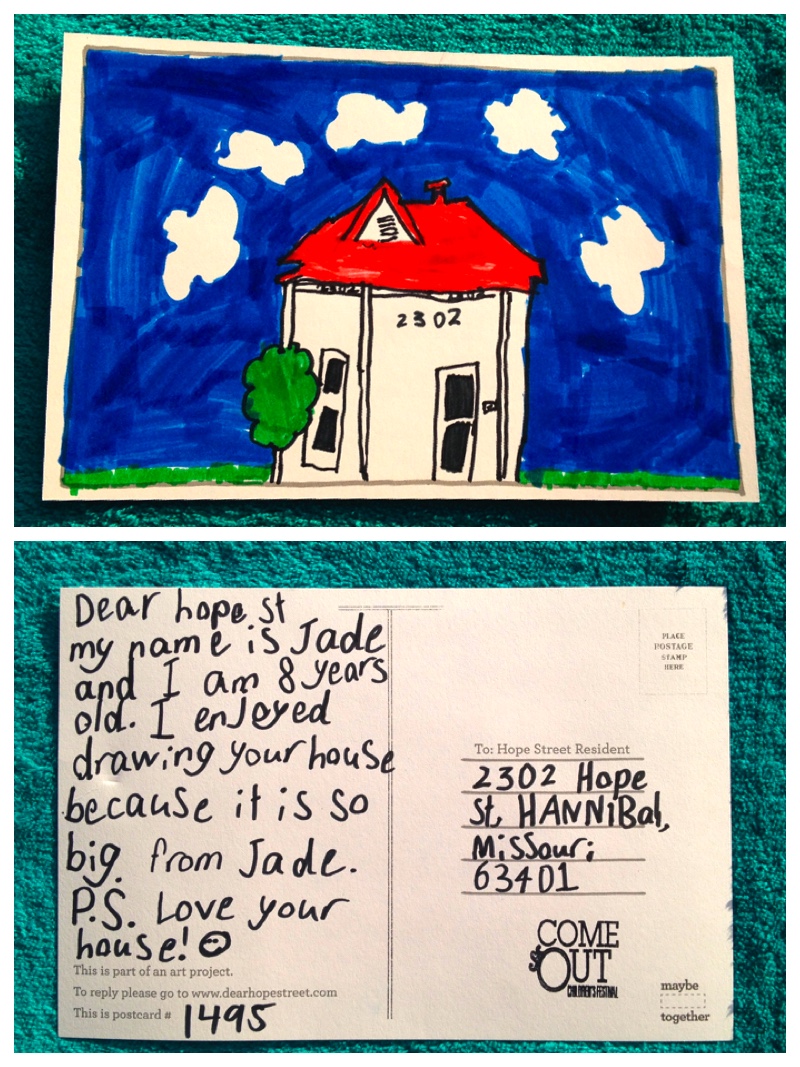 2302
Dear hope st
my name is Jade
and I am 8 years
old. I enJoyed
drawing your house
because it is so
big. from Jade.
P.S. Love your
house!
This is part of an art project.
To reply please go to www.dearhopestreet.com
This is postcard # 1495
PLACE
POSTAGE
STAMP
HERE
To: Hope Street Resident
2302 Hope
St, HANNiBal,
Missouri
63401
COME
OUT
CHILDREN'S FESTIVAL
maybe
together